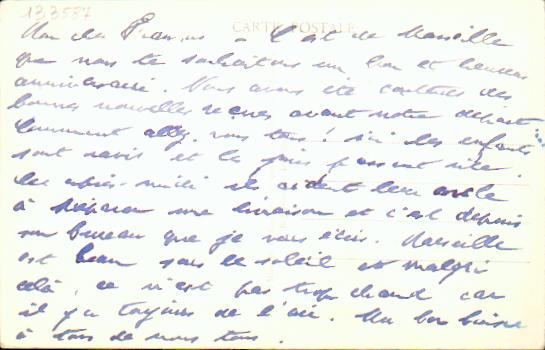 133587
CARTE POSTALE
Mon cher Francis - C'est de Marseille
que nous te souhaitons un bon et heureux
anniversaire. Nous avons été contents des
bonnes nouvelles reçues avant notre départ...
Comment allez vous tous! ici les enfants
sont ravis et les jours passent vite.
Les après-midi ils aident leur oncle
à préparer une livraison et c'est depuis
son bureau que je vous écris. Marseille
est beau sous le soleil et malgré
celà, ce n'est pas trop chaud car
il y a toujours de l'air. Un bon baiser
à tous de nous tous.